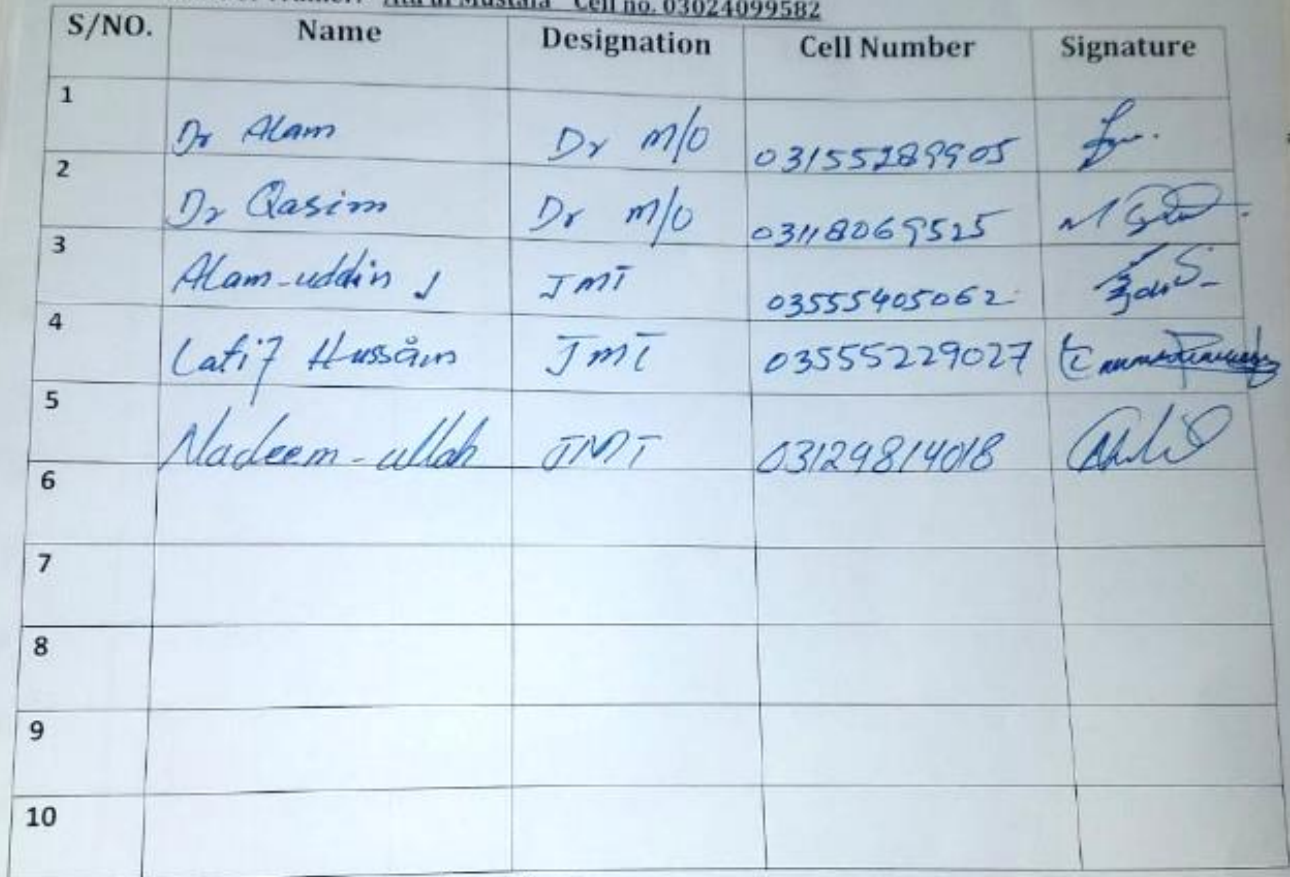 Ata ul Mustafa Cell no. 03024099582
S/NO. Name Designation Cell Number Signature
1 Dr Alam Dr M/O 03155289905
2 Dr Qasim Dr M/O 03118069525
3 Alam-uddin J JMT 03555405062
4 Latif Hussain JMT 03555229027
5 Nadeem-ullah JMT 03129814018
6
7
8
9
10